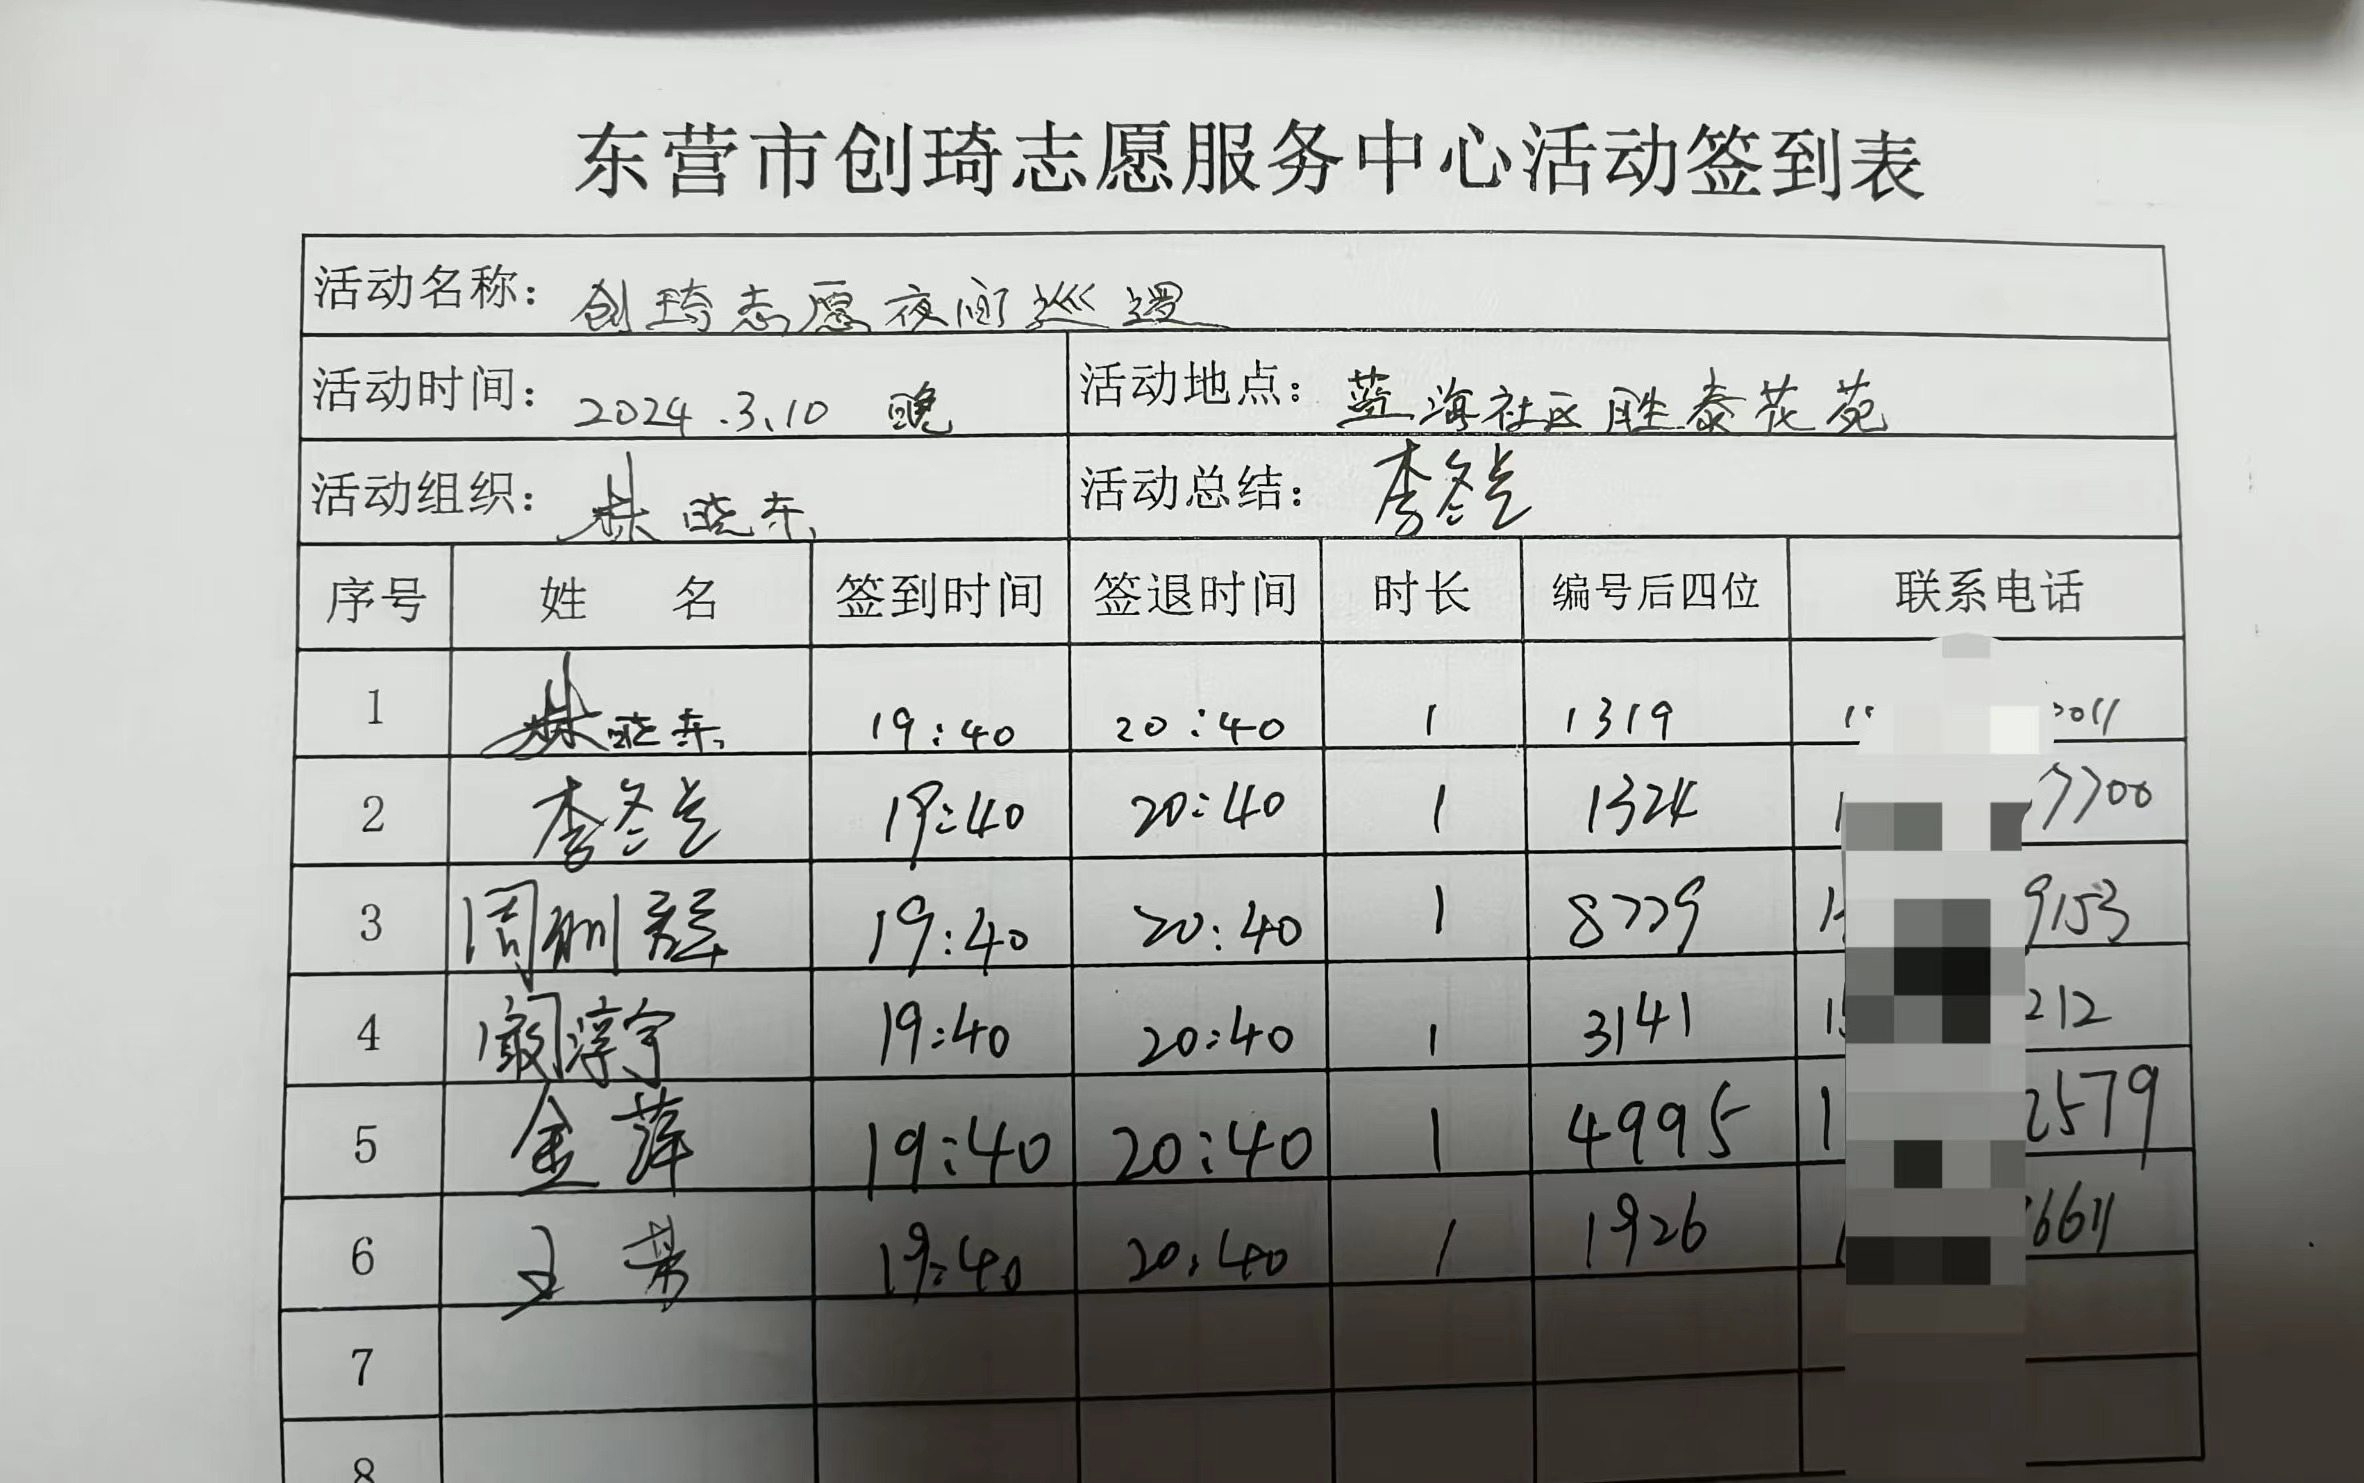 东营市创琦志愿服务中心活动签到表
活动名称：创琦志愿夜间巡逻
活动时间：2024.3.10 晚 活动地点：蓝海社区胜泰花苑
活动组织：林晓东 活动总结：李冬兰
序号 姓 名 签到时间 签退时间 时长 编号后四位 联系电话
1 林晓东 19:40 20:40 1 1319 011
2 李冬兰 19:40 20:40 1 1324 7700
3 周 19:40 20:40 1 8779 9153
4 阚淳宇 19:40 20:40 1 3141 212
5 金萍 19:40 20:40 1 4995 2579
6 19:40 20:40 1 1926 6611
7
8